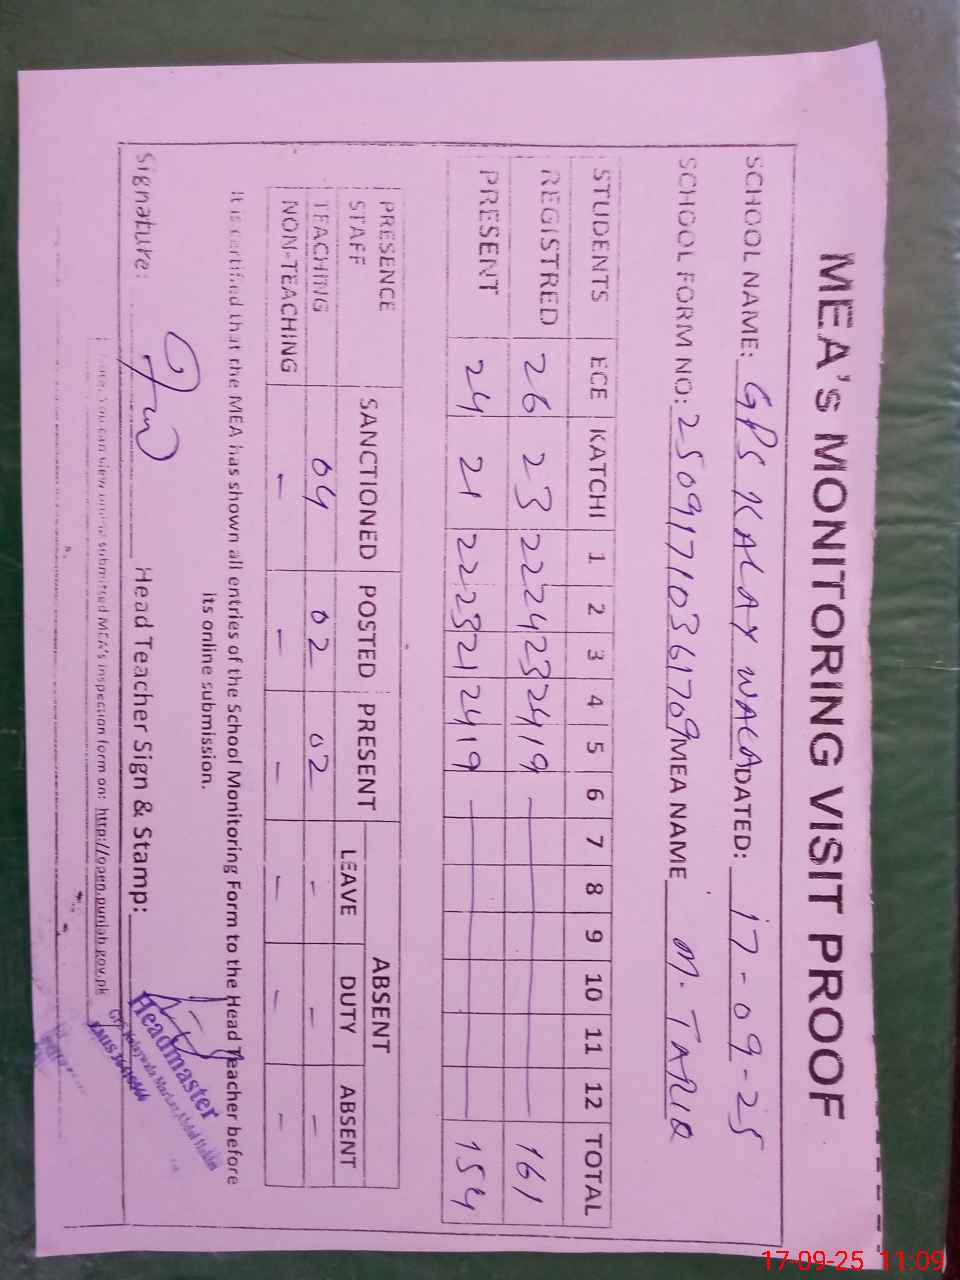 MEA's MONITORING VISIT PROOF
SCHOOL NAME: GPS KALAY WALA DATED: 17-09-25
SCHOOL FORM NO: 25091710361709 MEA NAME M. TARIQ
STUDENTS ECE KATCHI 1 2 3 4 5 6 7 8 9 10 11 12 TOTAL
REGISTRED 26 23 22 24 23 24 19 — 161
PRESENT 24 21 22 23 21 24 19 — 154
PRESENCE STAFF SANCTIONED POSTED PRESENT ABSENT
LEAVE DUTY ABSENT
TEACHING 04 02 02 - - -
NON-TEACHING - - - - - -
It is certified that the MEA has shown all entries of the School Monitoring Form to the Head Teacher before
its online submission.
Signature: Head Teacher Sign & Stamp:
Headmaster
Note: You can view online submitted MEA's inspection form on: http://open.punjab.gov.pk
17-09-25 11:09